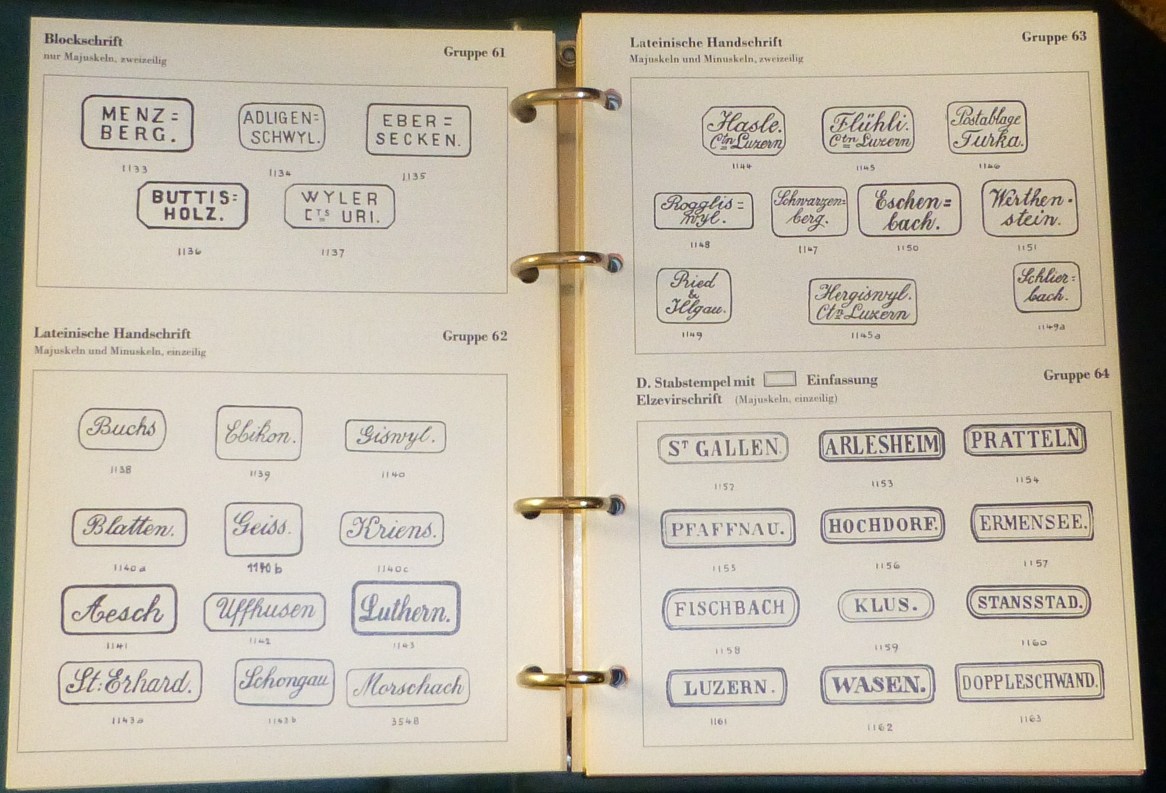 Blockschrift
Gruppe 61
nur Majuskeln, zweizeilig
MENZ=
BERG.
1133
ADLIGEN=
SCHWYL.
1134
EBER=
SECKEN.
1135
BUTTIS=
HOLZ.
1136
WYLER
CTS URI.
1137
Lateinische Handschrift
Gruppe 62
Majuskeln und Minuskeln, einzeilig
Buchs
1138
Ebikon.
1139
Giswyl.
1140
Blatten.
1140a
Geiss.
1140b
Kriens.
1140c
Aesch
1141
Uffhusen
1142
Luthern.
1143
St: Erhard.
1143a
Schongau
1143b
Morschach
3548
Lateinische Handschrift
Gruppe 63
Majuskeln und Minuskeln, zweizeilig
Hasle.
Ctn Luzern
1144
Flühli.
Ctn Luzern
1145
Postablage
Furka.
1146
Rogglis=
wyl.
1148
Schwarzen=
berg.
1147
Eschen=
bach.
1150
Werthen-
stein.
1151
Ried
&
Illgau.
1149
Hergiswyl.
Ctn Luzern
1145a
Schlier=
bach.
1149a
D. Stabstempel mit Einfassung
Gruppe 64
Elzevirschrift (Majuskeln, einzeilig)
ST GALLEN.
1152
ARLESHEIM
1153
PRATTELN
1154
PFAFFNAU.
1155
HOCHDORF.
1156
ERMENSEE.
1157
FISCHBACH
1158
KLUS.
1159
STANSSTAD.
1160
LUZERN.
1161
WASEN.
1162
DOPPLESCHWAND.
1163